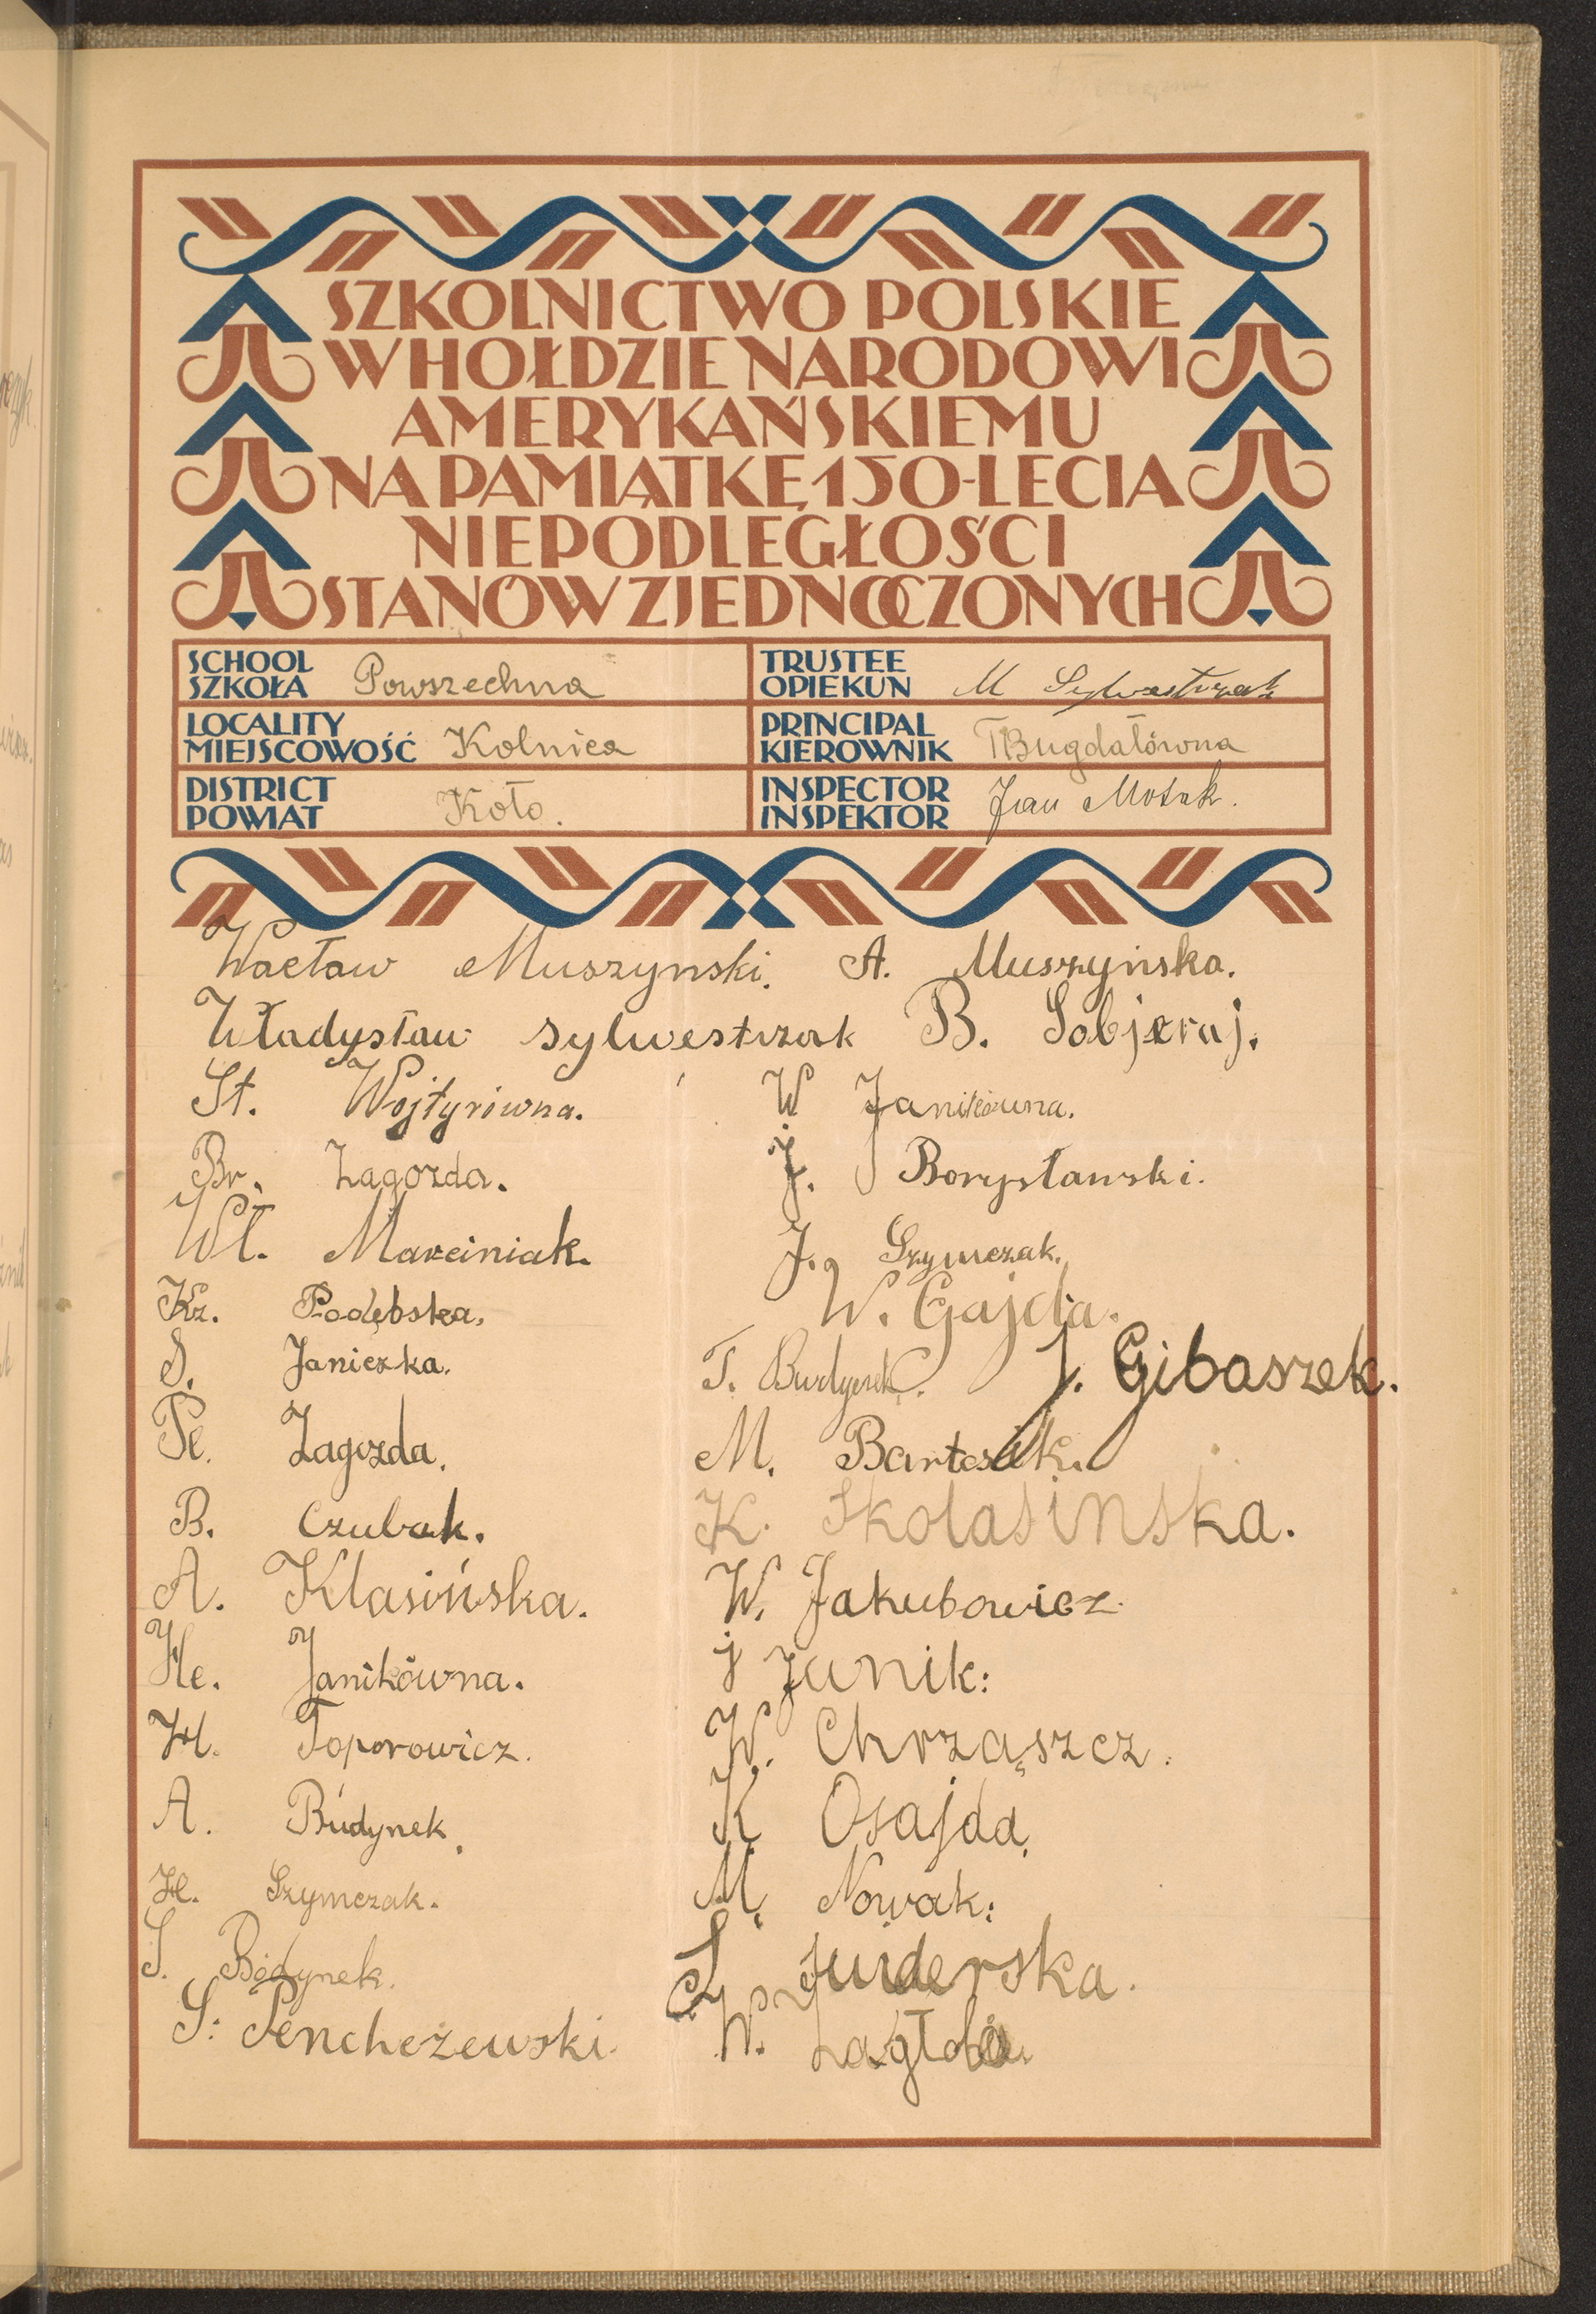 SZKOLNICTWO POLSKIE
W HOŁDZIE NARODOWI
AMERYKAŃSKIEMU
NA PAMIĄTKĘ 150-LECIA
NIEPODLEGŁOŚCI
STANÓW ZJEDNOCZONYCH
SCHOOL
SZKOŁA Powszechna
TRUSTEE
OPIEKUN M Sylwestrzak
LOCALITY
MIEJSCOWOŚĆ Kolnica
PRINCIPAL
KIEROWNIK T Bugdałówna
DISTRICT
POWIAT Koło.
INSPECTOR
INSPEKTOR Jan
Wacław Muszynski. A. Muszyńska.
Władysław Sylwestrzak B. Sobjeraj.
St. Wojtyrówna. W Janikówna.
Br. Zagozda. J. Borysławski.
Wł. Marciniak. J. Szymczak.
Kz. Podębska. W. Gajda.
S. Janiczka. T. Budynek. J. Gibaszek.
Pe. Zagozda. M. Bartosik.
B. Czubak. K. Skolasinska.
A. Klasińska. W. Jakubowicz.
He. Janikówna. j Janik:
H. Toporowicz. W. Chrząszcz.
A. Budynek. K Osajda.
H. Szymczak. M. Nowak:
S. Budynek. S.
S: Penchezewski. W. Zagłoba.